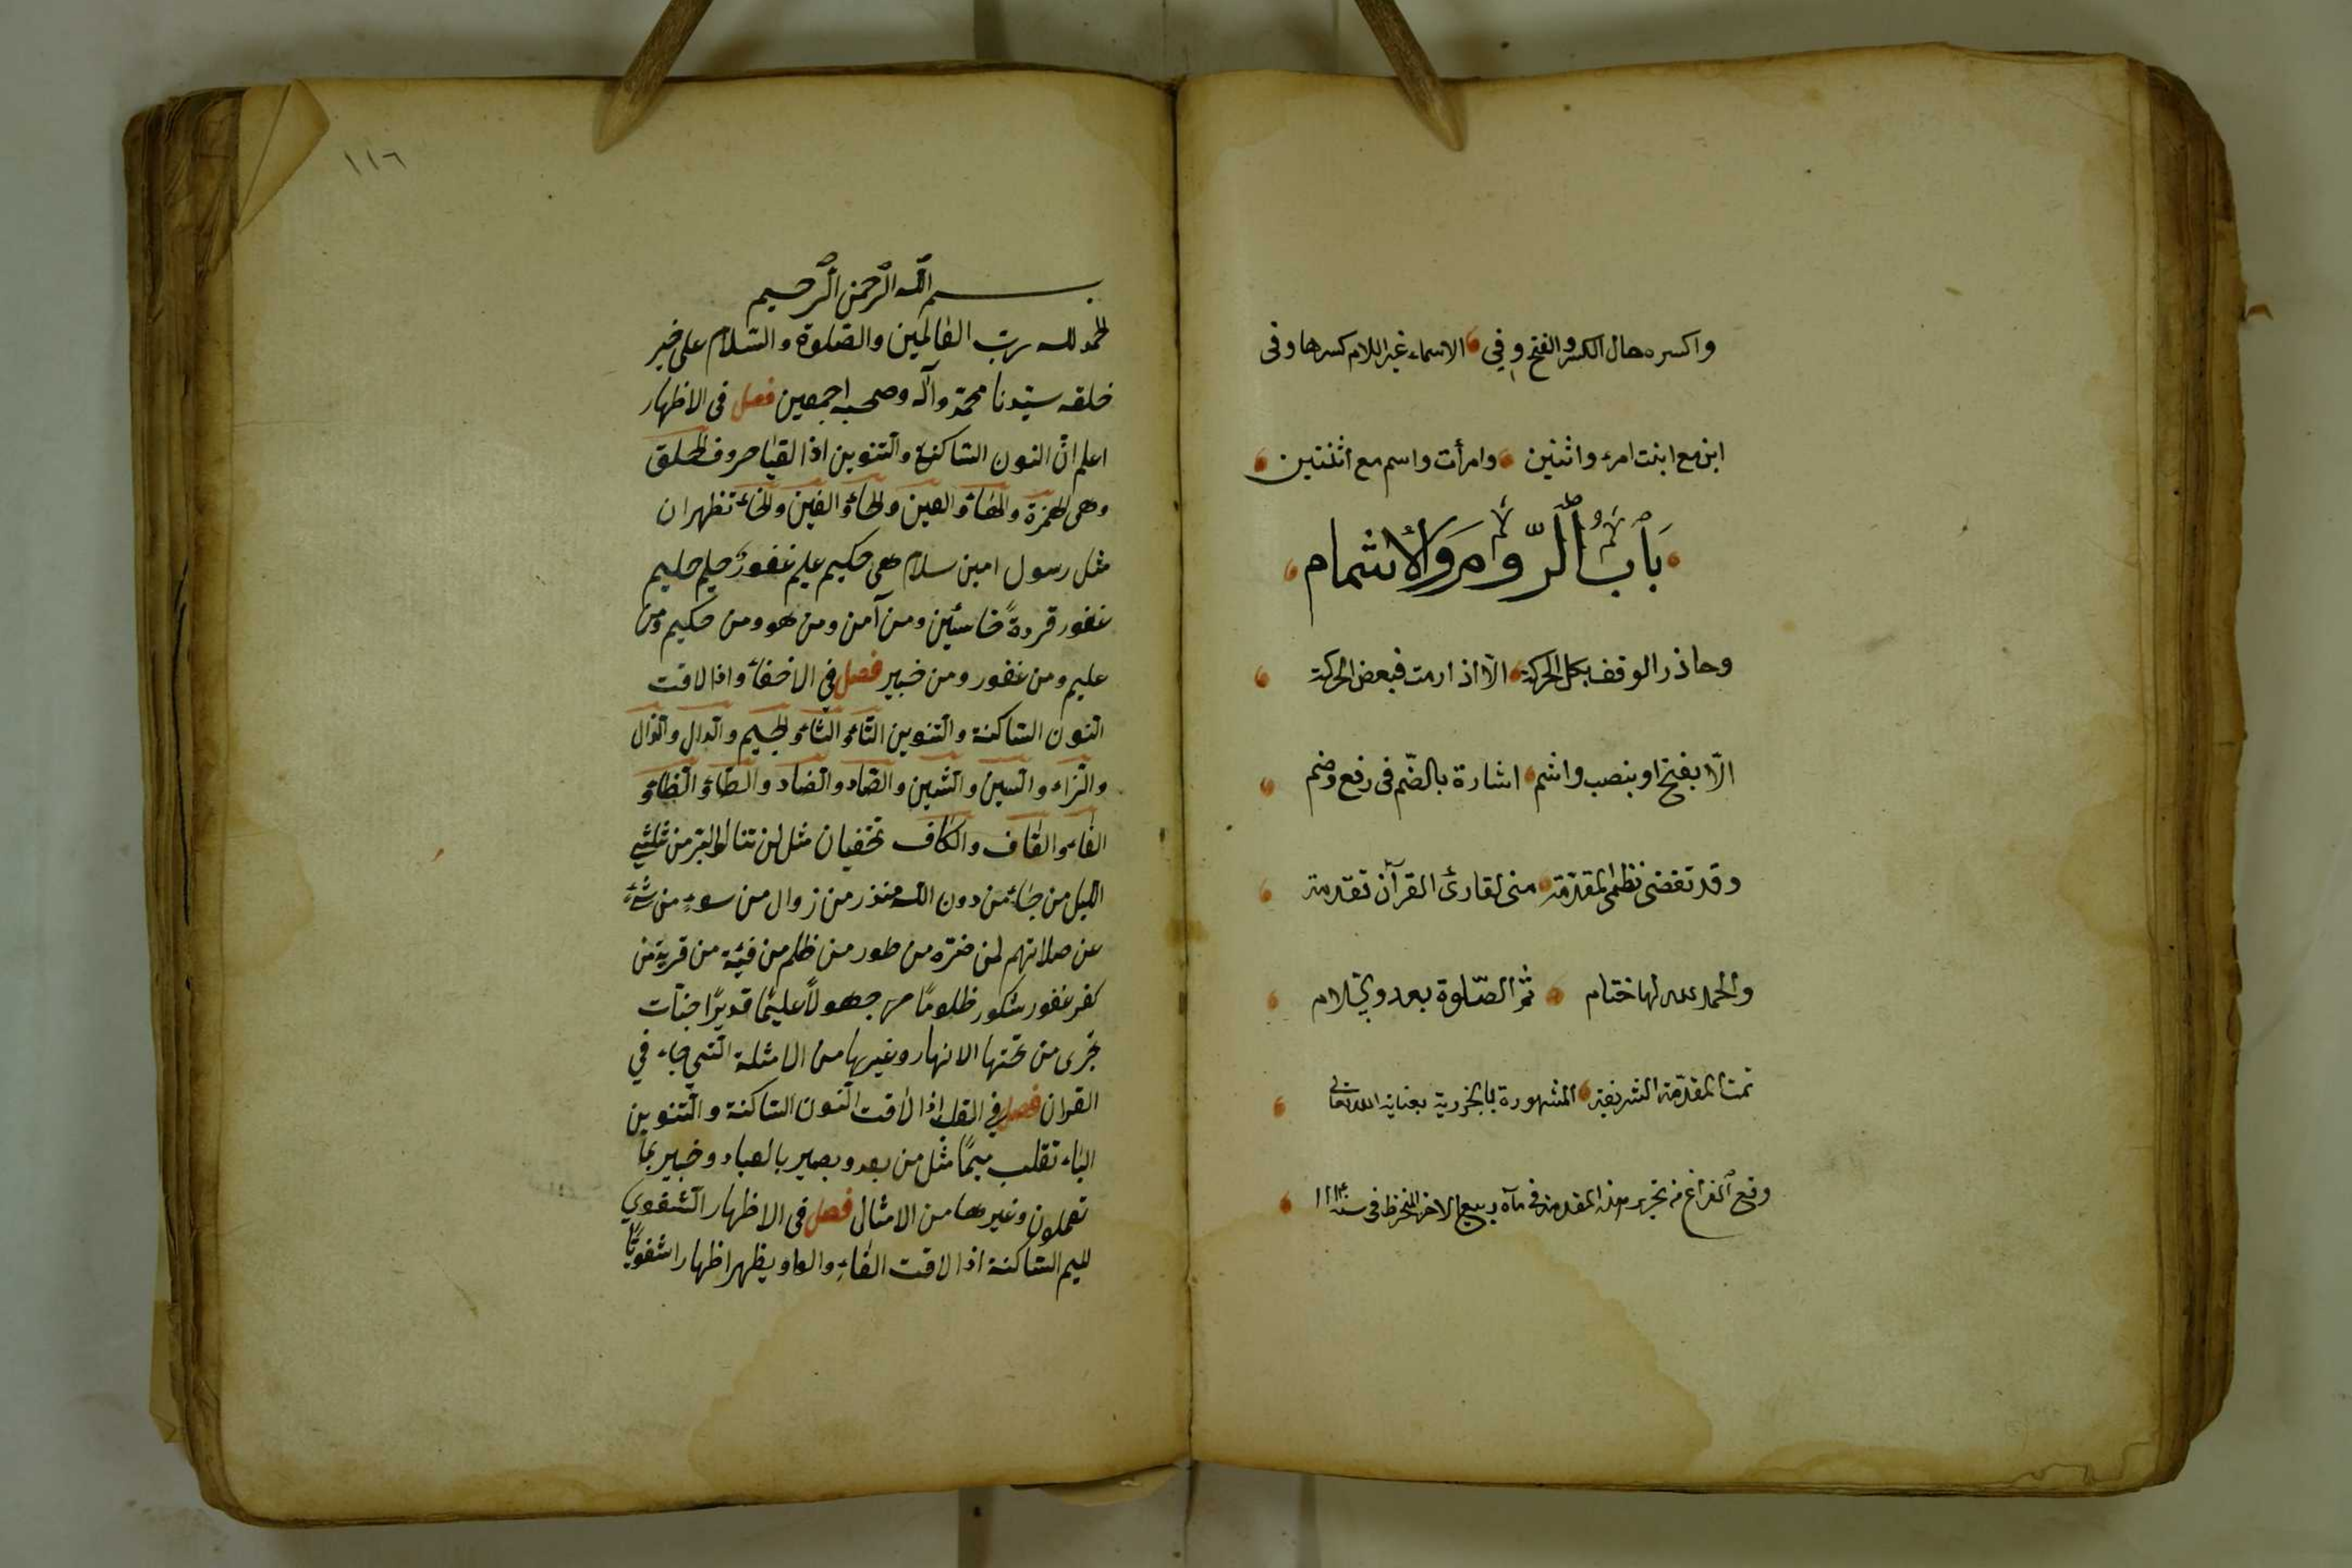 واكسره حال الكسر والفتح وفي الاسماء غير اللام كسرها وفى
ابن مع ابنت امرء واثنين وامرأت واسم مع اثنتين
بَابُ الرَّوْمِ وَالْاِشْمَام
وحاذر الوقف بكل الحركة الّا اذا رمت فبعض الحركة
الّا بفتح او بنصب واشم اشارة بالضّم فى رفع وضم
وقد تقضى نظمى المقدّمة منى لقارئ القرآن تقدمة
والحمد لله لها ختام ثمّ الصّلوة بعد والسّلام
تمت المقدّمة الشريفة المشهورة بالجزرية بعناية الله تعالى
وقع الفراغ من تحرير هذه المقدمة فى ماه ربيع الاخر فى سنه
١١٦
بسم الله الرّحمن الرّحيم
الحمد لله ربّ العالمين والصّلوة والسّلام على خير
خلقه سيّدنا محمّد وآله وصحبه اجمعين فصل فى الاظهار
اعلم انّ النون السّاكنة والتّنوين اذا لقيا حروف الحلق
وهى الهمزة والهاء والعين والحاء والغين والخاء تظهران
مثل رسول امين سلام هى حكيم عليم غفورٌ حليم حليم
غفور قردةً خاسئين ومن آمن ومن هو ومن حكيم ومن
عليم ومن غفور ومن خبير فصل في الاخفاء واذا لاقت
النّون السّاكنة والتّنوين التّاء والثّاء والجيم والدّال والذّال
والزّاء والسّين والشّين والصّاد والضّاد والطّاء والظّاء و
الفاء والقاف والكاف تخفيان مثل لن تنالوا البرّ من ثلثي
اللّيل من جاء من دون الله منذر من زوال من سوءٍ من شئٍ
عن صلاتهم لمن ضرّه من طور من ظلم من فئة من قرية من
كفر غفور شكور ظلومًا جهولاً عليمًا قديرًا جنّات
تجرى من تحتها الانهار وغيرها من الامثلة الّتي جاء في
القران فصل في القلب اذا لاقت النّون السّاكنة والتّنوين
الباء تقلب ميمًا مثل من بعد وبصير بالعباد وخبير بما
تعملون وغيرها من الامثال فصل فى الاظهار الشّفوي
لميم السّاكنة اذا لاقت الفاءِ والواو يظهر اظهارا شفويًّا